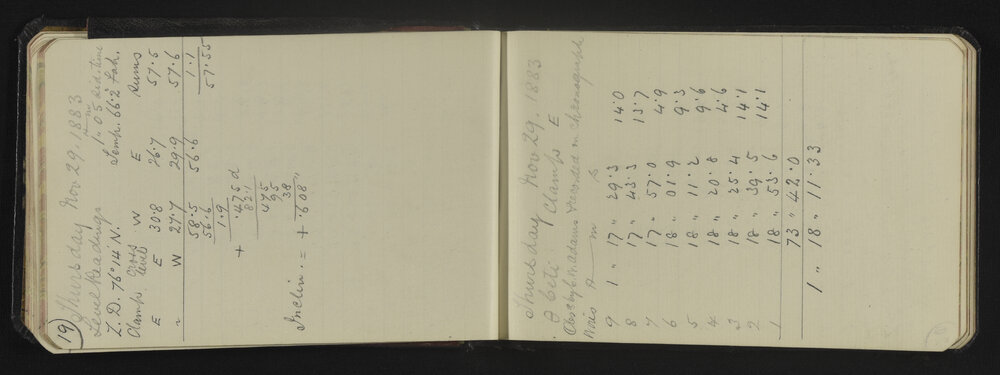 19
Thursday Nov 29. 1883
Level Readings 1h 05m Sid. time
Z. D. 76° 14' N. Temp. 66.2° Fahr.
Clamp. levels W E Sums
E E 30.8 26.7 57.5
" W 27.7 29.9 57.6
58.5 56.6 1.1
56.6 57.55
1.9
+ .475 d
82.1
475
95
38
Inclin. = + .608"
Thursday Nov 29. 1883
θ Ceti Clamp E
Obsd by Adams Recorded on Chronograph
Wires h m s
9 1 " 17 " 29.3 14.0
8 17 " 43.3 13.7
7 17 " 57.0 4.9
6 18 " 01.9 9.3
5 18 " 11.2 9.6
4 18 " 20.8 4.6
3 18 " 25.4 14.1
2 18 " 39.5 14.1
1 18 " 53.6
73 " 42.0
1 " 18 " 11.33